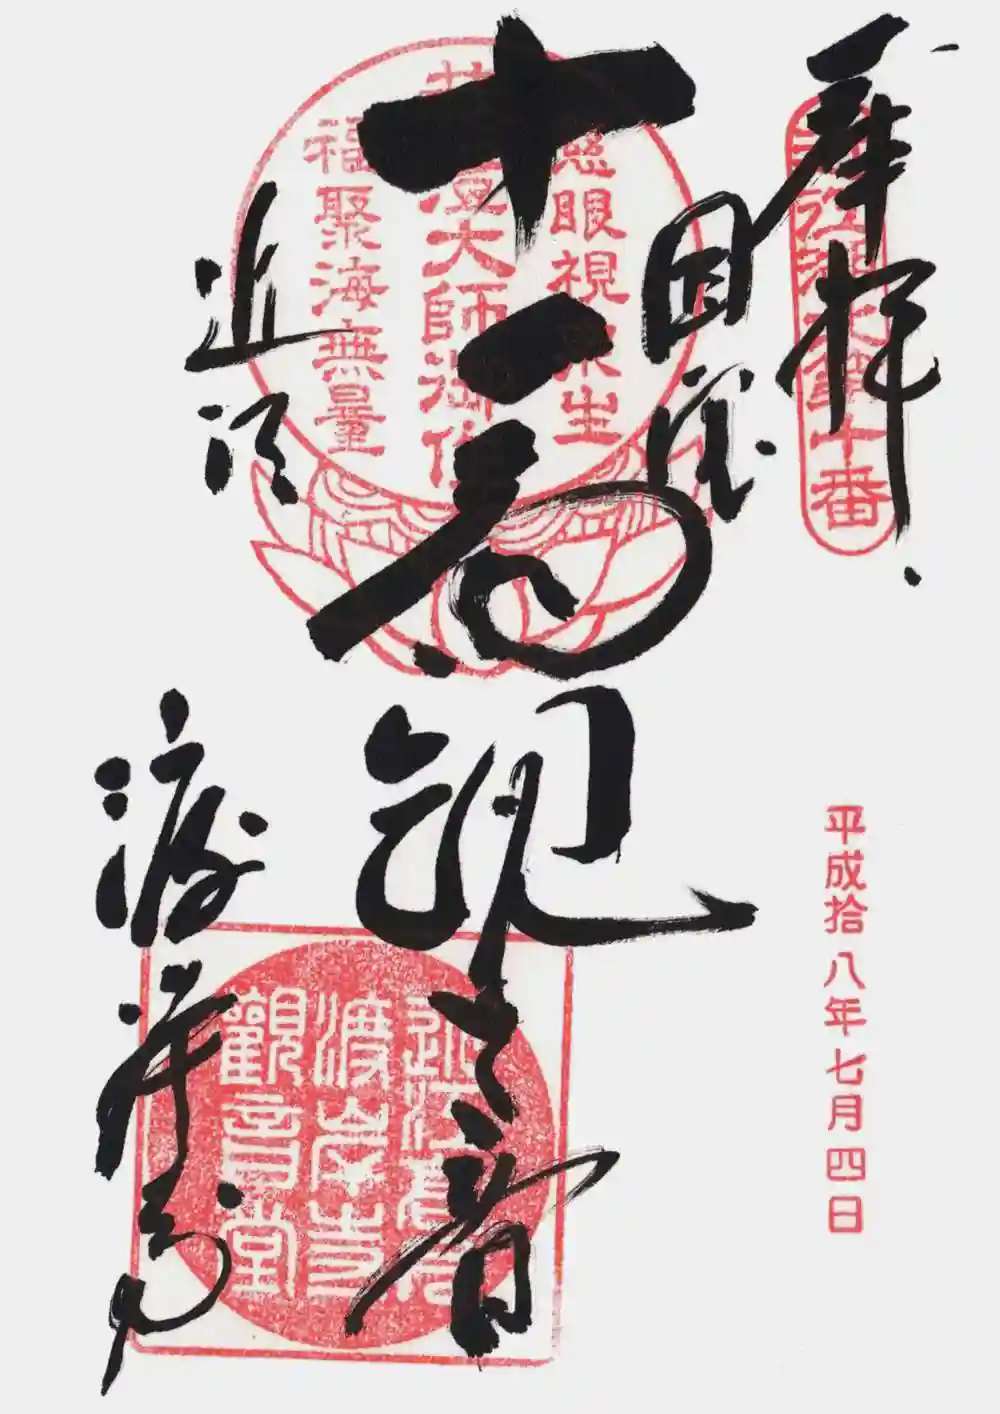 奉拝
平成拾八年七月四日
国宝
慈眼視衆生
十一面観音
澄大師御作
福聚海無量
近江
渡岸寺
渡岸寺
觀音堂